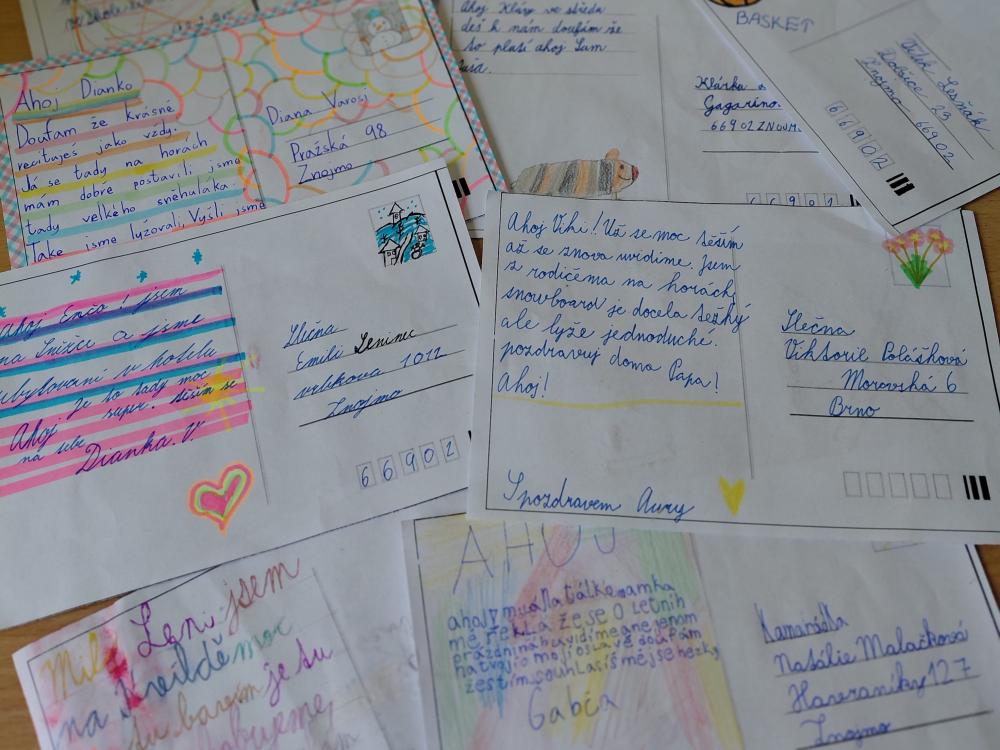 Ahoj Dianko
Doufám že krásně
recituješ jako vždy.
Já se tady na horách
mám dobře postavili jsme
tady velkého sněhuláka.
Take jsme lyžovali, Vyšli jsme
Diana Varosi
Pražská 98
Znojmo
Ahoj Kláry ve středa
deš k nám doufám že
to platí ahoj Tam
Klárka
Gagarino
669 02 ZNOJM
6 6 9 0 2
BASKET
Dobšice 23
Znojmo 669 02
6 6 9 0 2
Ahoj Enčo! jsem
na Sněžce a jsme
ubytovaní v hotelu
Je to tady moc
super. těším se
Ahoj
na tebe
Dianka V.
Slečna
Emili Leninec
vrbkova 1012
Znojmo
6 6 9 0 2
Ahoj Viki! Už se moc těším
až se znova uvidíme. Jsem
s rodičema na horách,
snowboard je docela težký
ale lyže jednoduché.
pozdravuj doma Papa!
Ahoj!
S pozdravem Aury
Slečna
Viktorie Polášková
Moravská 6
Brno
Leni jsem
na Kvildě moc
tu bavím je tu
AHOJ
ahoj má Natálko mamka
mě řekla že se o letních
prázdninách uvidíme ane jenom
na tvojí o moji oslavě doufám
žestím souhlasíš měj se hezky
Gabča
Kamarádka
Natálie Malačková
Havraníky 127
Znojmo